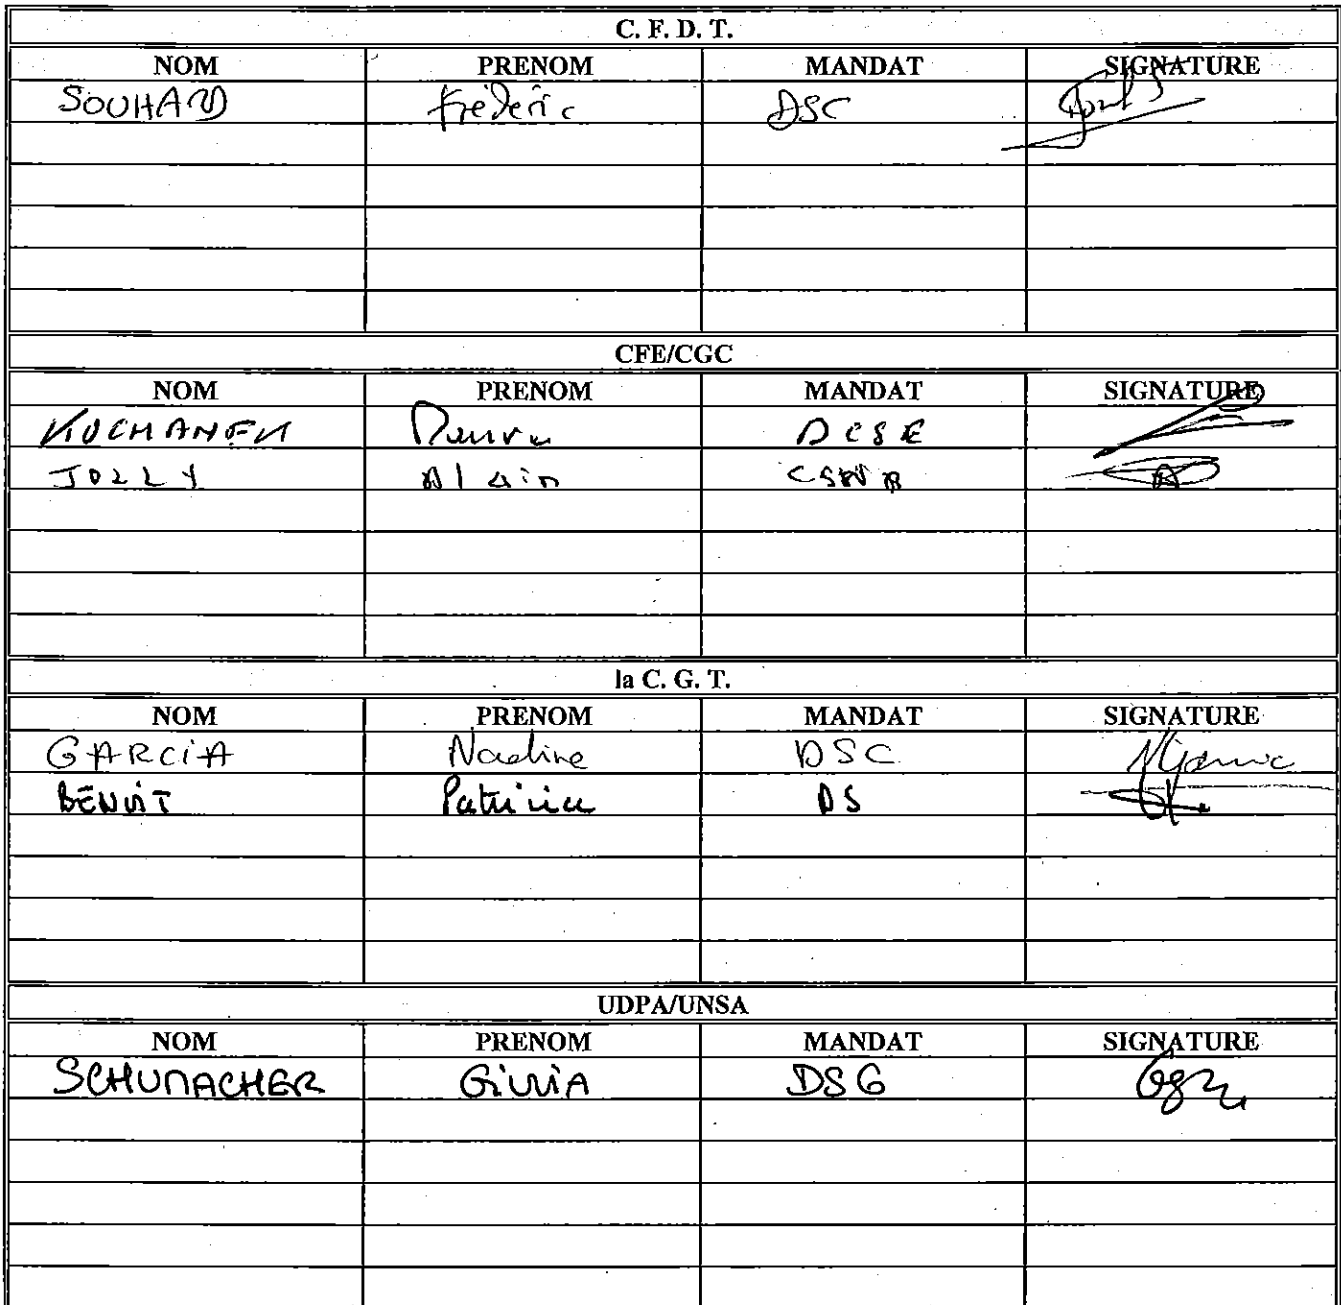 C. F. D. T.
NOM PRENOM MANDAT SIGNATURE
SOUHARD Frédéric DSC
CFE/CGC
NOM PRENOM MANDAT SIGNATURE
KOCHANEK DCSE
JOLLY Alain
la C. G. T.
NOM PRENOM MANDAT SIGNATURE
GARCIA Nadine DSC
BENOIT Patricia DS
UDPA/UNSA
NOM PRENOM MANDAT SIGNATURE
SCHUMACHER DSG